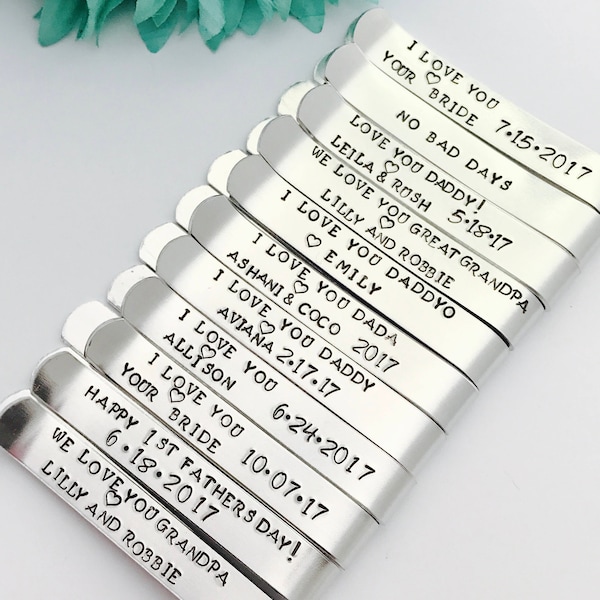 I LOVE YOU
YOUR ♡ BRIDE 7·15·2017
NO BAD DAYS
LOVE YOU DADDY!
♡
LEILA & RUSH 5·18·17
WE LOVE YOU GREAT GRANDPA
♡
LILLY AND ROBBIE
I LOVE YOU DADDYO
♡ EMILY
I LOVE YOU DADA
♡
ASHANI & COCO 2017
I LOVE YOU DADDY
♡
AVIANA 2·17·17
I LOVE YOU
♡
ALLISON 6·24·2017
I LOVE YOU
YOUR ♡ BRIDE 10·07·17
HAPPY 1ST FATHERS DAY!
6·18·2017
WE LOVE YOU GRANDPA
♡
LILLY AND ROBBIE